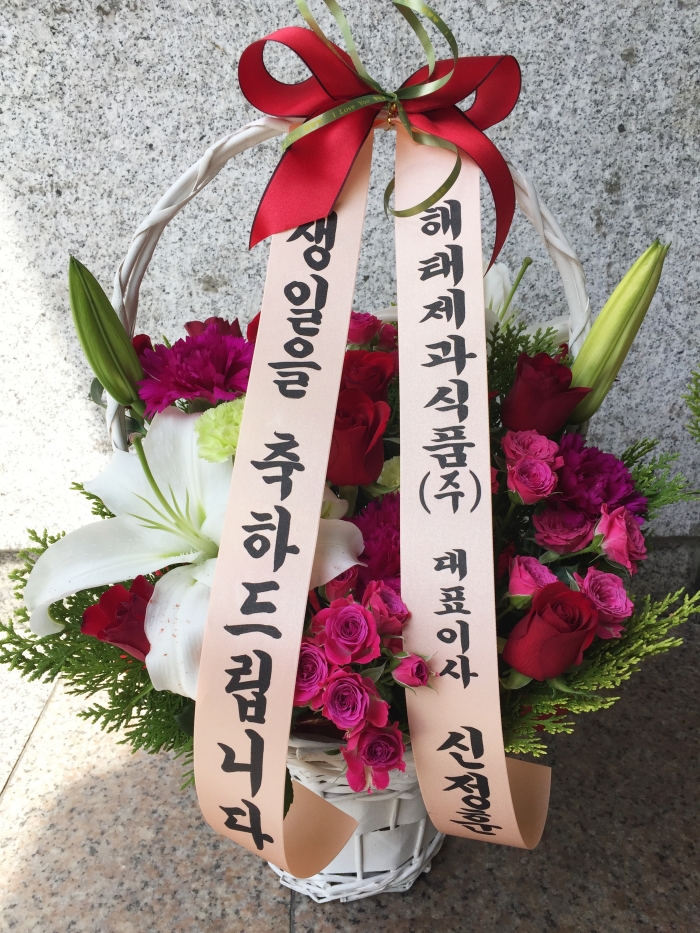 생일을 축하드립니다
해태제과식품(주) 대표이사 신정훈
I Love You